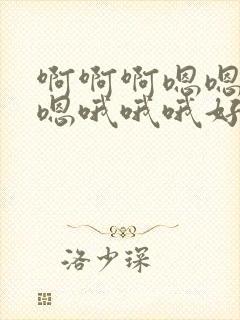 啊啊啊嗯嗯
嗯哦哦哦好
洛少琛